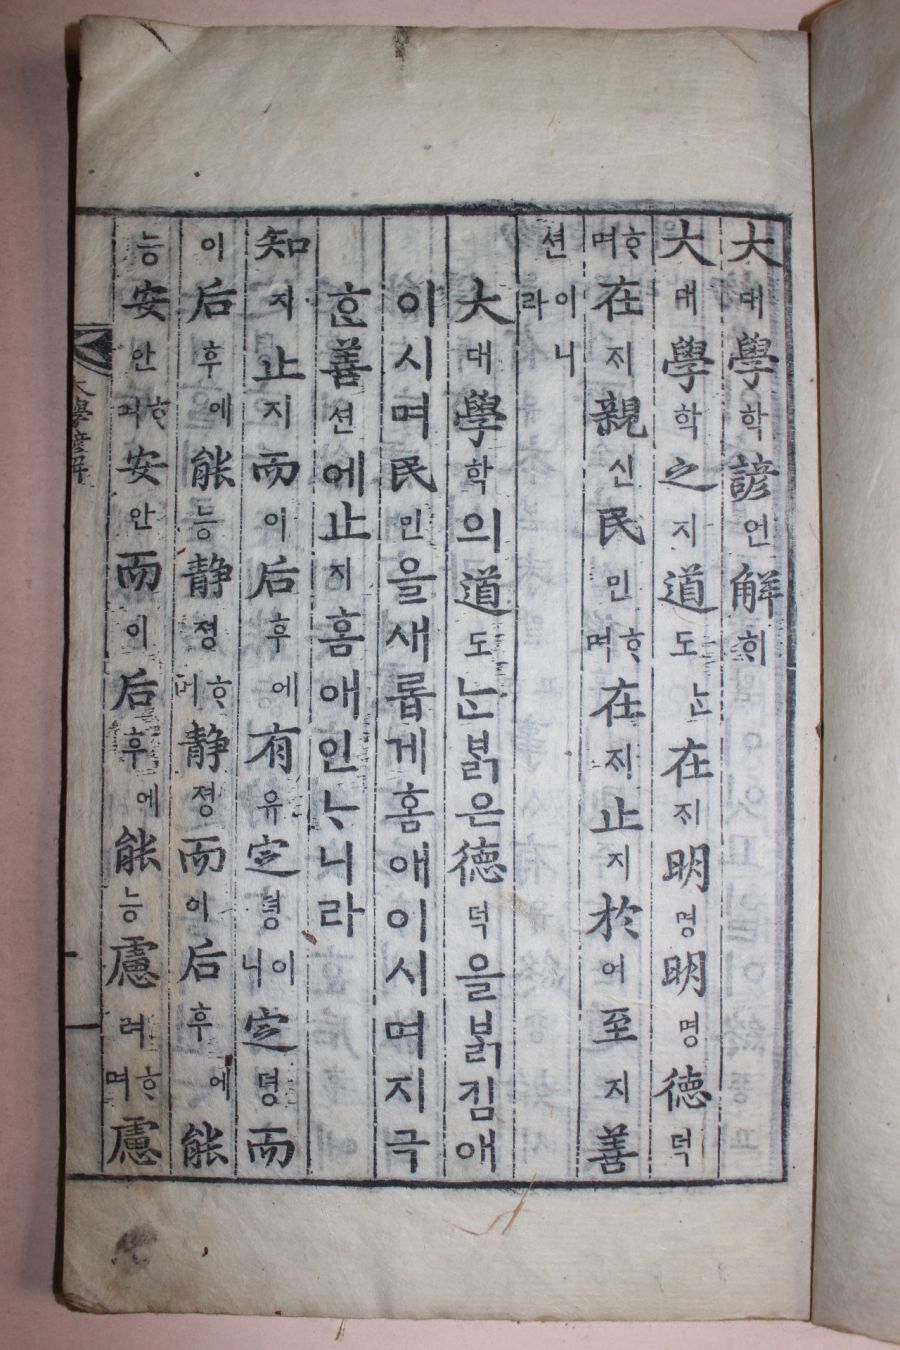 大대學학諺언解ᄒᆡ
大대學학之지道도ᄂᆞᆫ在ᄌᆡ明명明명德덕
ᄒᆞ며在ᄌᆡ親신民민ᄒᆞ며在ᄌᆡ止지於어至지善
션이니라
大대學학의道도ᄂᆞᆫᄇᆞᆰ은德덕을ᄇᆞᆰ김애
이시며民민을새롭게홈애이시며지극
ᄒᆞᆫ善션에止지홈애인ᄂᆞ니라
知지止지而이后후에有유定뎡이니定뎡而
이后후에能능静졍ᄒᆞ며静졍而이后후에能
능安안ᄒᆞ며安안而이后후에能능慮려ᄒᆞ며慮
大學諺解